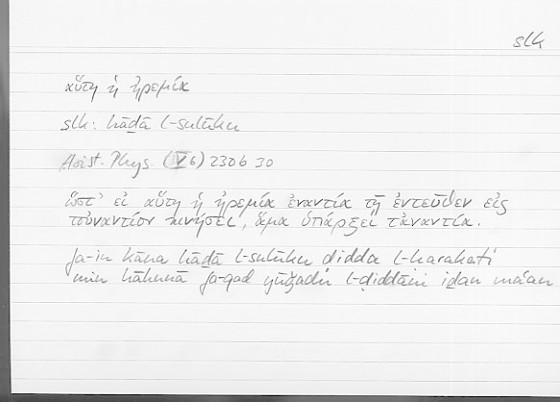 slk
αὕτη ἡ ἠρεμία
slk: hāḏā l-sulūku
Arist. Phys. (V 6) 230b 30
ὥστ' εἰ αὕτη ἡ ἠρεμία ἐναντία τῇ ἐντεῦθεν εἰς
τοὐναντίον κινήσει, ἅμα ὑπάρξει τἀναντία.
fa-in kāna hāḏā l-sulūku ḍidda l-ḥarakati
min hāhunā fa-qad yūǧadu l-ḍiddāni iḏan maʿan